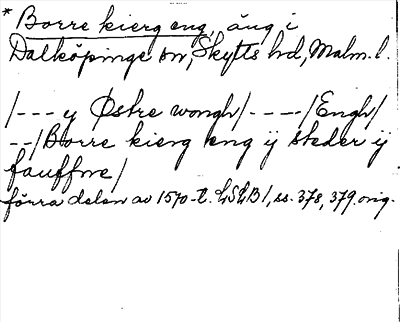 * Borre kierg eng, äng i
Dalköpinge sn, Skytts hd, Malm. l.
/--- y Østre wongh/----/Engh/
--/Borre kierg eng ij steder ij
fauffne/
förra delen av 1570-t. LSLB 1, ss. 378, 379. orig.